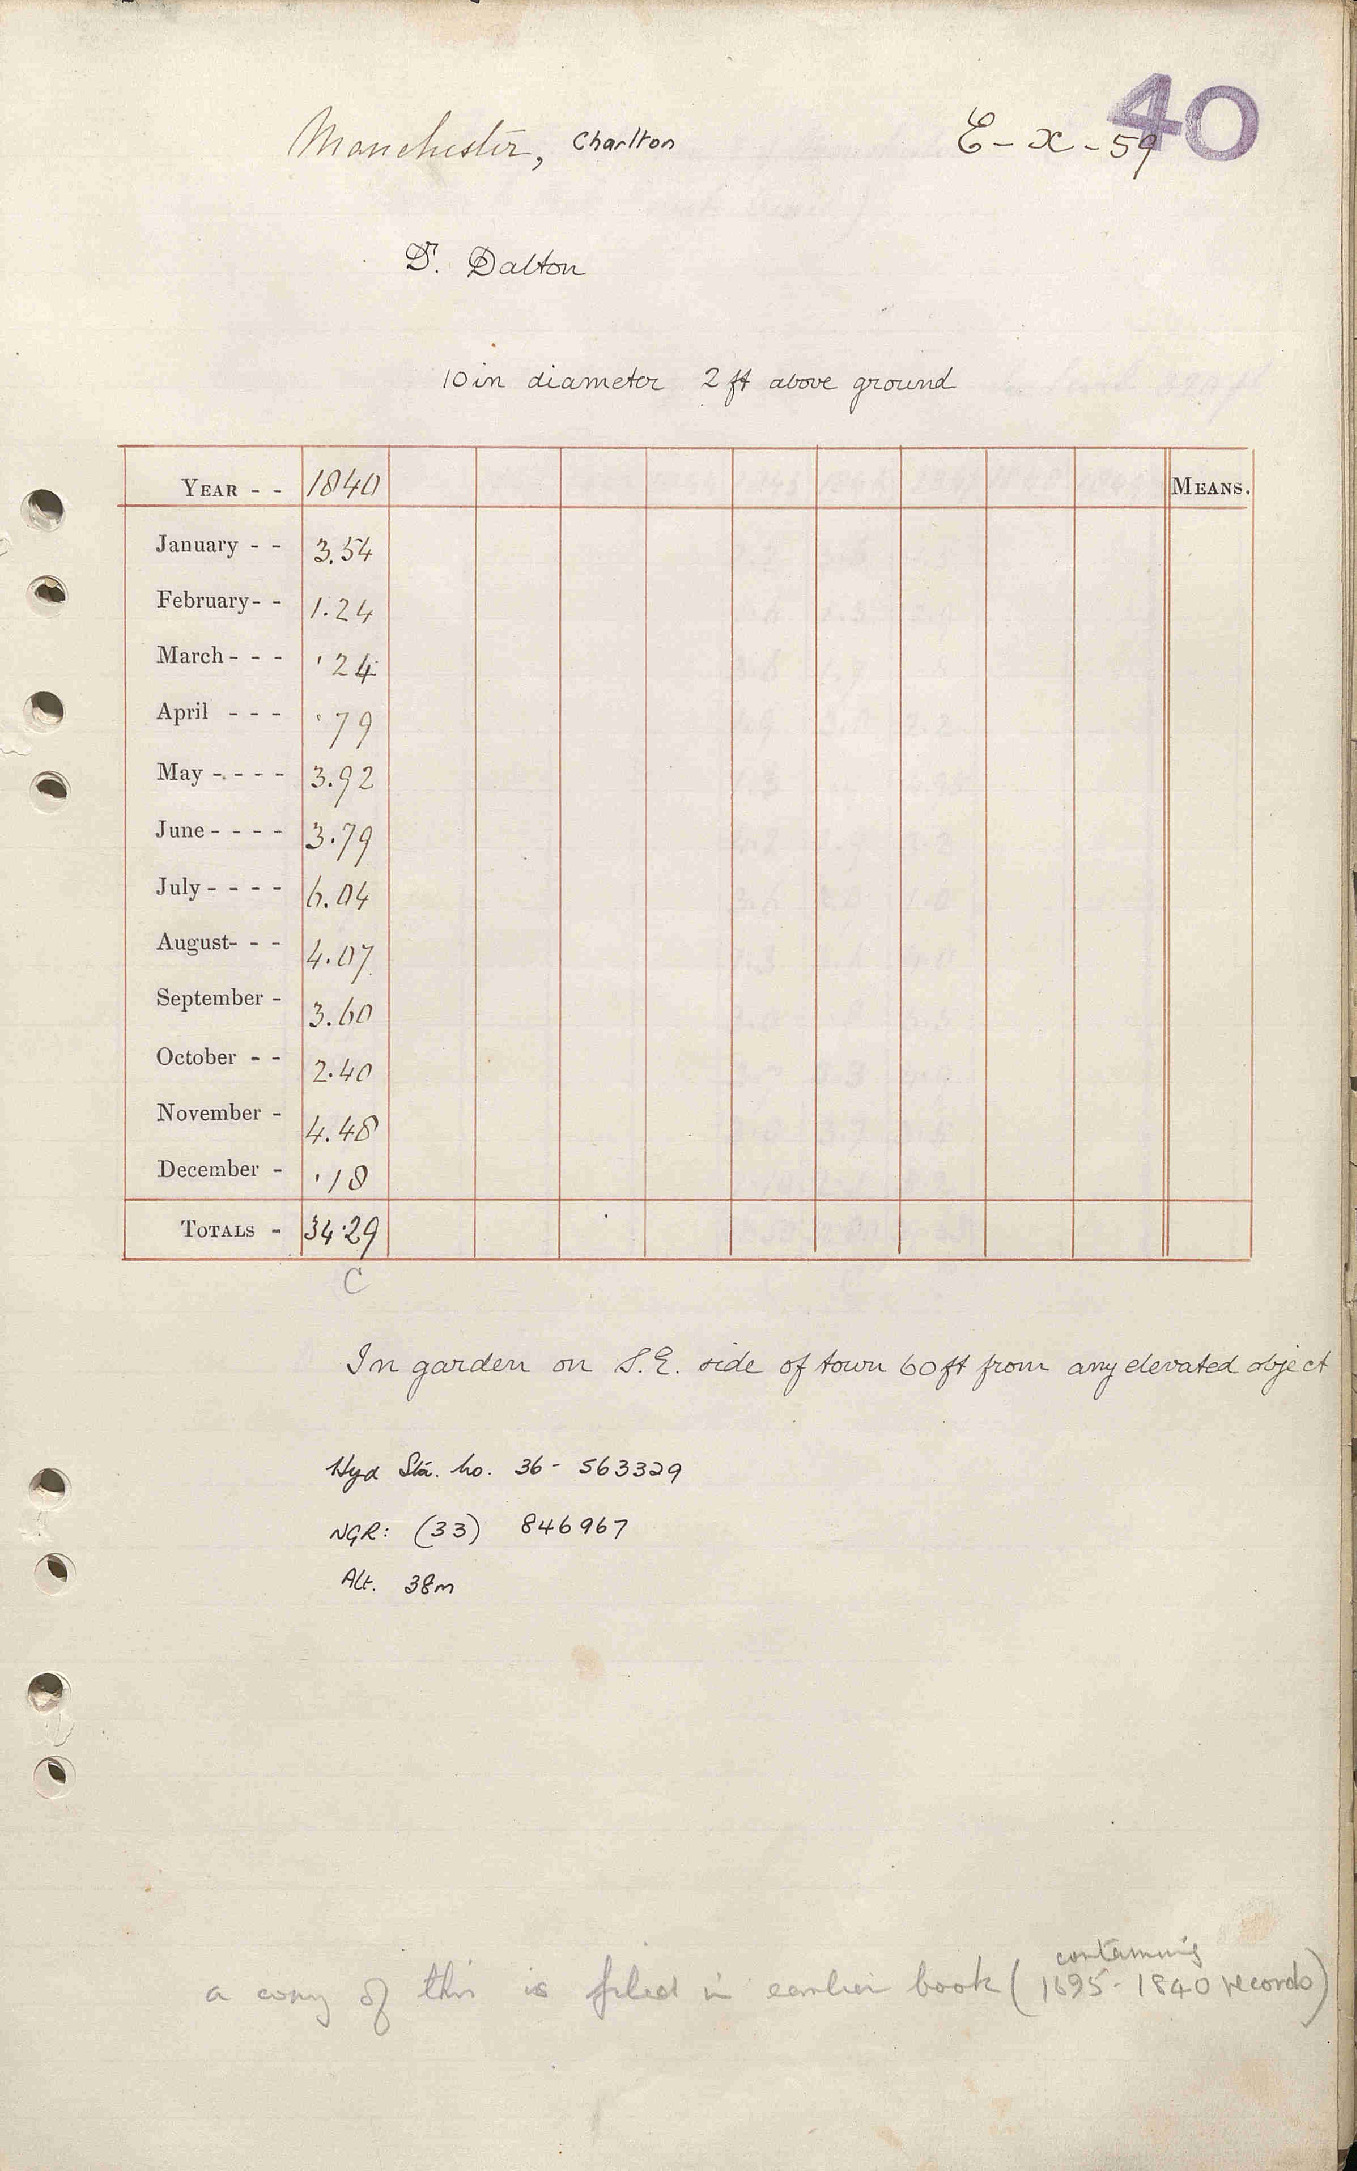 40
Manchester, Charlton E-X-59
Dr. Dalton
10in diameter 2ft above ground
YEAR - - 1840 MEANS.
January - - 3.54
February - - 1.24
March - - - .24
April - - - .79
May - - - - 3.92
June - - - - 3.79
July - - - - 6.04
August - - - 4.07
September - 3.60
October - - 2.40
November - 4.48
December - .18
TOTALS - 34.29
C
In garden on S.E. side of town 60ft from any elevated object
Hyd Sta. No. 36 - 563329
NGR: (33) 846967
Alt. 38m
containing
a copy of this is filed in earlier book (1695-1840 records)